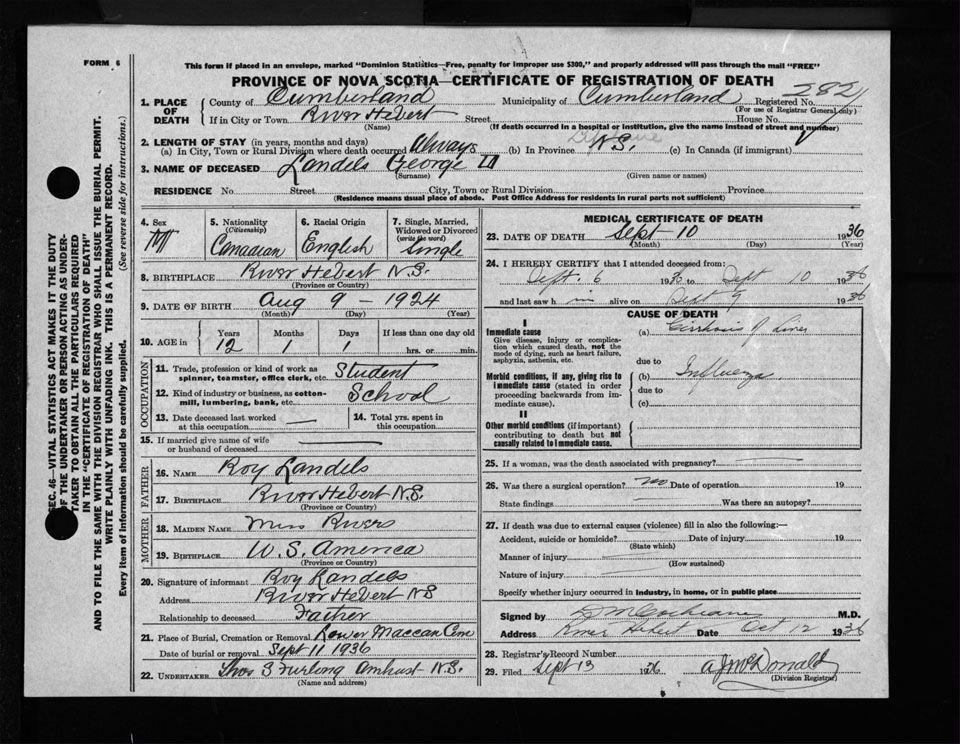 FORM 6
This form if placed in an envelope, marked "Dominion Statistics—Free, penalty for improper use $300," and properly addressed will pass through the mail "FREE"
PROVINCE OF NOVA SCOTIA—CERTIFICATE OF REGISTRATION OF DEATH
282
1. PLACE OF DEATH County of Cumberland Municipality of Cumberland Registered No.
(For use of Registrar General only)
If in City or Town River Hebert Street House No.
(Name) (If death occurred in a hospital or institution, give the name instead of street and number)
2. LENGTH OF STAY (in years, months and days)
(a) In City, Town or Rural Division where death occurred Always (b) In Province N.S. (c) In Canada (if immigrant)
3. NAME OF DECEASED Landels George
(Surname) (Given name or names)
RESIDENCE No Street City, Town or Rural Division Province
(Residence means usual place of abode. Post Office Address for residents in rural parts not sufficient)
4. Sex M
5. Nationality (Citizenship) Canadian
6. Racial Origin English
7. Single, Married, Widowed or Divorced (write the word) Single
8. BIRTHPLACE River Hebert N.S.
(Province or Country)
9. DATE OF BIRTH Aug 9 – 1924
(Month) (Day) (Year)
10. AGE in Years 12 Months 1 Days 1 If less than one day old hrs. or min.
OCCUPATION
11. Trade, profession or kind of work as spinner, teamster, office clerk, etc. Student
12. Kind of industry or business, as cotton-mill, lumbering, bank, etc. School
13. Date deceased last worked at this occupation —
14. Total yrs. spent in this occupation
15. If married give name of wife or husband of deceased
FATHER
16. NAME Roy Landels
17. BIRTHPLACE River Hebert N.S.
(Province or Country)
MOTHER
18. MAIDEN NAME Miss Rivers
19. BIRTHPLACE U.S. America
(Province or Country)
20. Signature of informant Roy Landels
Address River Hebert NS
Relationship to deceased Father
21. Place of Burial, Cremation or Removal Lower Maccan Cem
Date of burial or removal Sept 11 1936
22. UNDERTAKER Thos S Furlong Amherst N.S.
(Name and address)
MEDICAL CERTIFICATE OF DEATH
23. DATE OF DEATH Sept 10 1936
(Month) (Day) (Year)
24. I HEREBY CERTIFY that I attended deceased from:
Sept. 6 1936 to Sept 10 1936
and last saw him alive on Sept 9 1936
CAUSE OF DEATH
I
Immediate cause (a) Cirrhosis of Liver
Give disease, injury or complication which caused death, not the mode of dying, such as heart failure, asphyxia, asthenia, etc.
due to
Morbid conditions, if any, giving rise to immediate cause (stated in order proceeding backwards from immediate cause).
(b) Influenza
due to
(c)
II
Other morbid conditions (if important) contributing to death but not causally related to immediate cause.
25. If a woman, was the death associated with pregnancy?
26. Was there a surgical operation? no Date of operation 19
State findings Was there an autopsy?
27. If death was due to external causes (violence) fill in also the following:—
Accident, suicide or homicide? Date of injury 19
(State which)
Manner of injury
(How sustained)
Nature of injury
Specify whether injury occurred in industry, in home, or in public place
Signed by Cochrane M.D.
Address River Hebert Date Oct 12 1936
28. Registrar's Record Number
29. Filed Sept 13 1936 A J McDonald
(Division Registrar)
SEC. 46—VITAL STATISTICS ACT MAKES IT THE DUTY
OF THE UNDERTAKER OR PERSON ACTING AS UNDER-
TAKER TO OBTAIN ALL THE PARTICULARS REQUIRED
IN THE "CERTIFICATE OF REGISTRATION OF DEATH"
AND TO FILE THE SAME WITH THE DIVISION REGISTRAR WHO SHALL ISSUE THE BURIAL PERMIT.
WRITE PLAINLY WITH UNFADING INK. THIS IS A PERMANENT RECORD.
Every item of information should be carefully supplied. (See reverse side for instructions.)